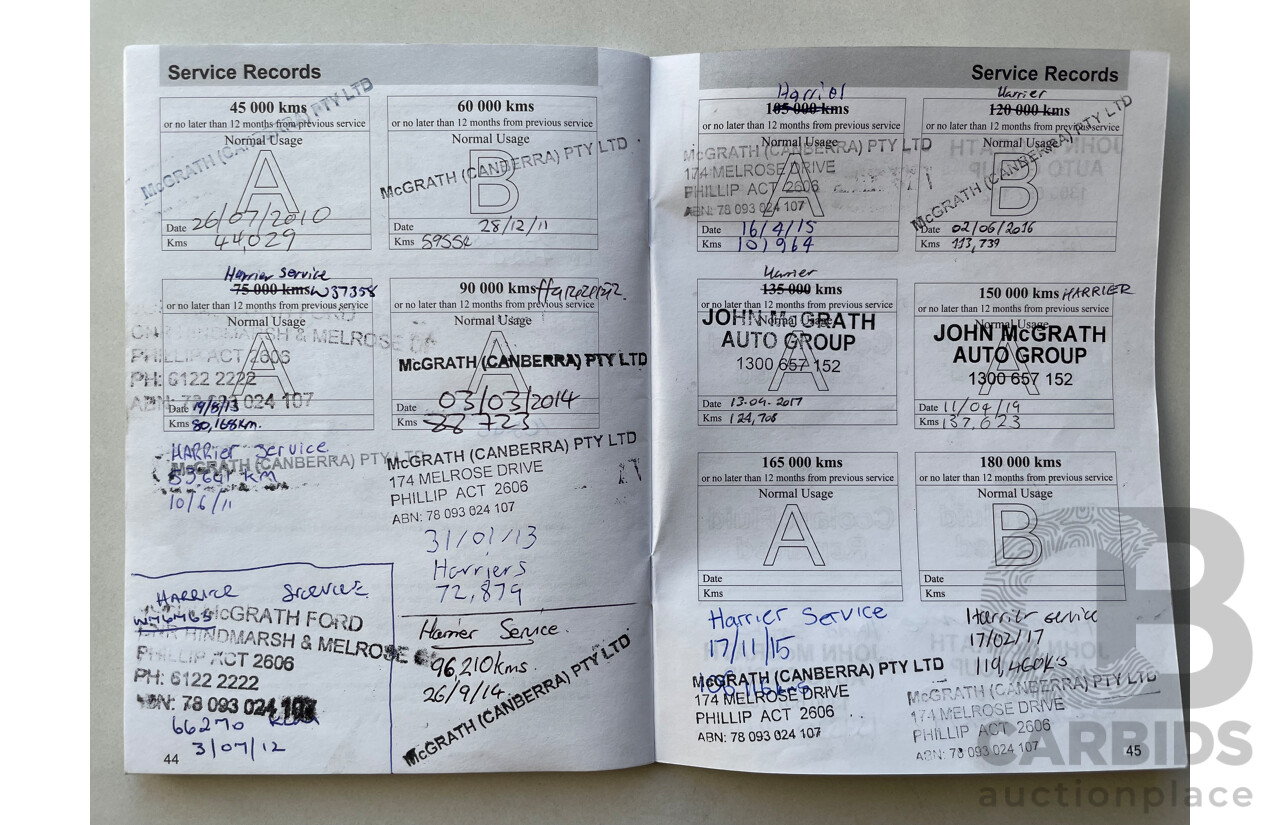 Service Records
45 000 kms
or no later than 12 months from previous service
Normal Usage
A
McGRATH (CANBERRA) PTY LTD
Date 26/07/2010
Kms 44029
60 000 kms
or no later than 12 months from previous service
Normal Usage
B
McGRATH (CANBERRA) PTY LTD
Date 28/12/11
Kms
Harrier Service
75 000 kms W37358
or no later than 12 months from previous service
Normal Usage
A
HINDMARSH & MELROSE
PHILLIP ACT 2606
PH: 6122 2222
ABN: 78 093 024 107
Date 19/8/13
Kms 80,168km.
90 000 kms
or no later than 12 months from previous service
Normal Usage
A
McGRATH (CANBERRA) PTY LTD
Date 03/03/2014
Kms 88 723
HARRier Service
McGRATH (CANBERRA) PTY LTD
KM
10/6/11
McGRATH (CANBERRA) PTY LTD
174 MELROSE DRIVE
PHILLIP ACT 2606
ABN: 78 093 024 107
31/01/13
Harriers
72,879
HARRIER SERVICE
McGRATH FORD
HINDMARSH & MELROSE
PHILLIP ACT 2606
PH: 6122 2222
ABN: 78 093 024 107
66270
3/07/12
Harrier Service.
96,210kms.
26/9/14
McGRATH (CANBERRA) PTY LTD
44
Service Records
Harrier
105 000 kms
or no later than 12 months from previous service
Normal Usage
A
McGRATH (CANBERRA) PTY LTD
174 MELROSE DRIVE
PHILLIP ACT 2606
ABN: 78 093 024 107
Date 16/4/15
Kms 101964
Harrier
120 000 kms
or no later than 12 months from previous service
Normal Usage
B
McGRATH (CANBERRA) PTY LTD
Date 02/06/2016
Kms 113,739
Harrier
135 000 kms
or no later than 12 months from previous service
Normal Usage
A
JOHN McGRATH
AUTO GROUP
1300 657 152
Date 13-09-2017
Kms 124,706
150 000 kms HARRIER
or no later than 12 months from previous service
Normal Usage
A
JOHN McGRATH
AUTO GROUP
1300 657 152
Date 11/04/19
Kms 137,623
165 000 kms
or no later than 12 months from previous service
Normal Usage
A
Date
Kms
180 000 kms
or no later than 12 months from previous service
Normal Usage
B
Date
Kms
Harrier Service
17/11/15
McGRATH (CANBERRA) PTY LTD
174 MELROSE DRIVE
PHILLIP ACT 2606
ABN: 78 093 024 107
Harrier service
17/02/17
119,460ks
McGRATH (CANBERRA) PTY LTD
174 MELROSE DRIVE
PHILLIP ACT 2606
ABN: 78 093 024 107
45
CARBIDS
auctionplace